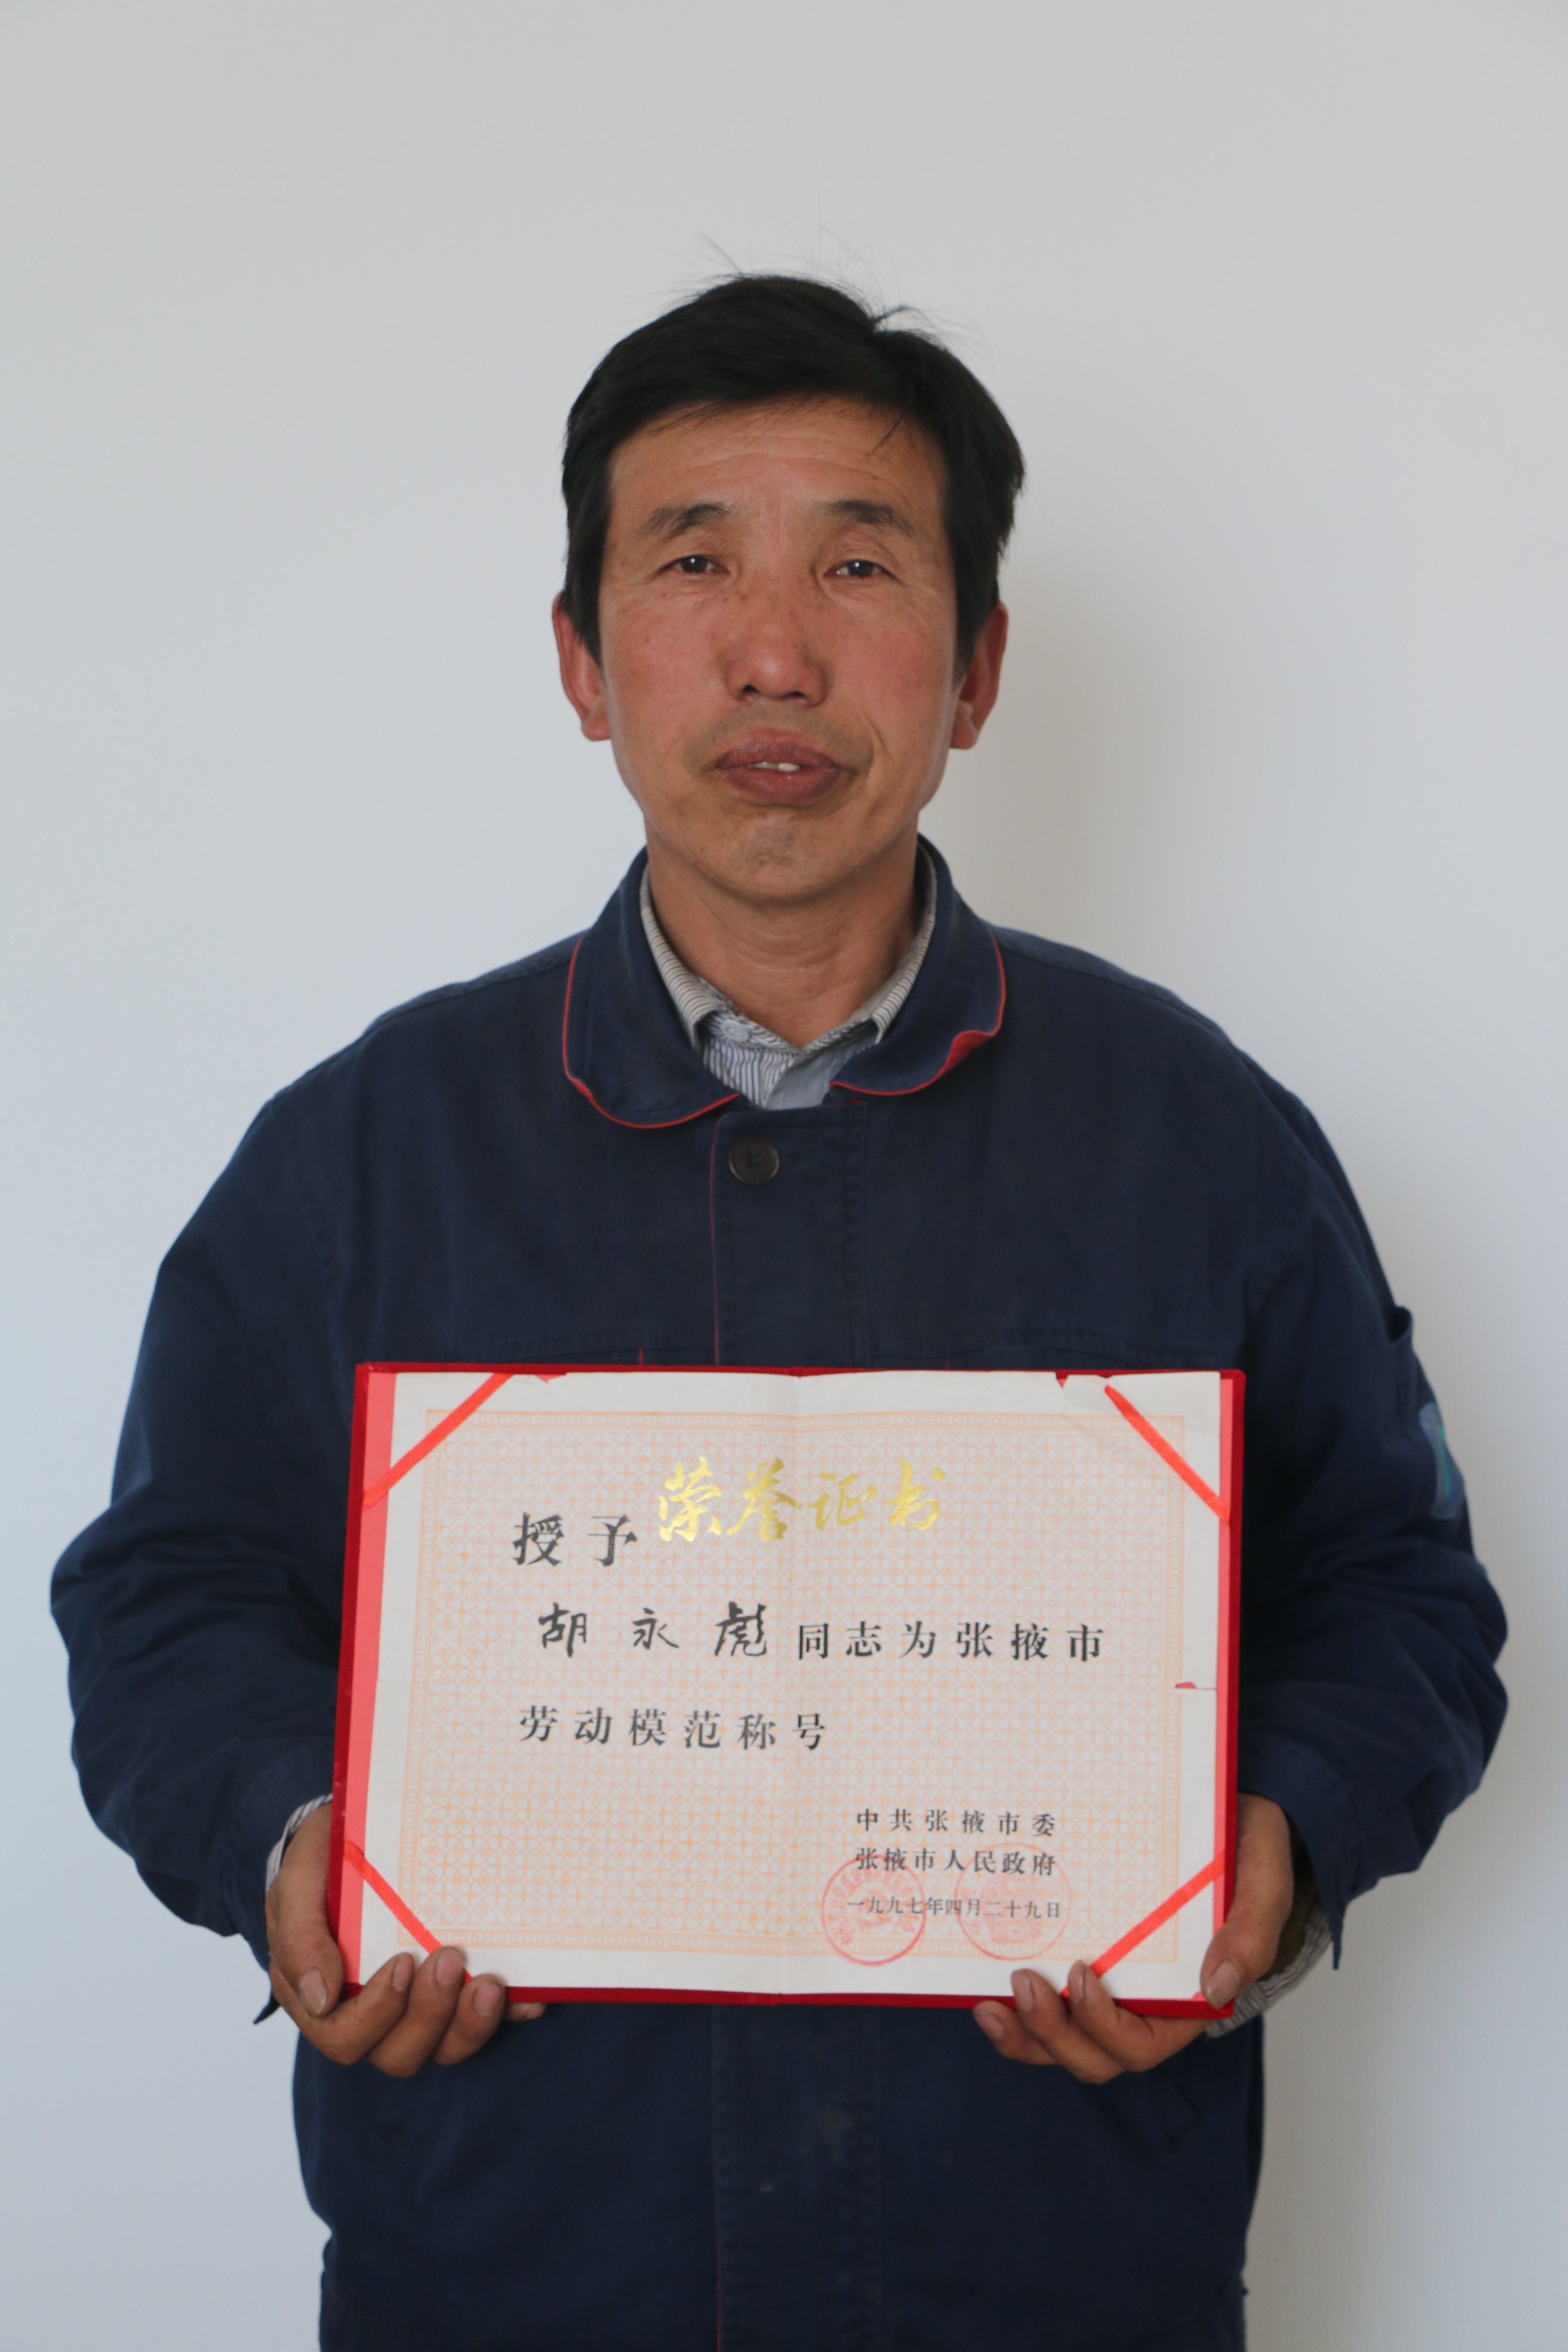 荣誉证书
授予
胡永彪同志为张掖市
劳动模范称号
中共张掖市委
张掖市人民政府
一九九七年四月二十九日